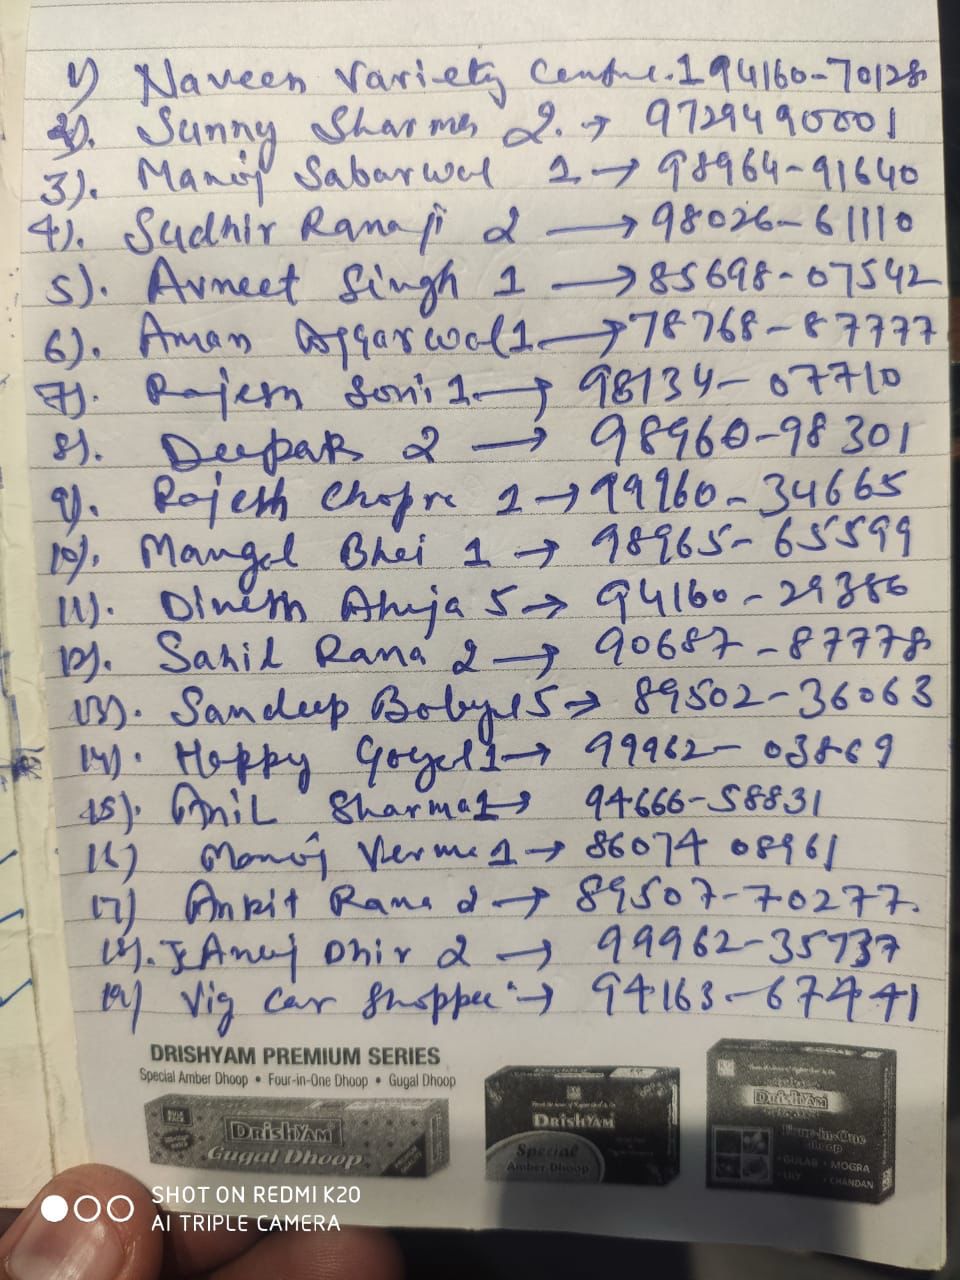 1) Naveen Variety Centre. 1 94160-70128
2). Sunny Sharma 2. → 9729490001
3). Manoj Sabarwal 1 → 98964-91640
4). Sudhir Ranaji 2 → 98026-61110
5). Avneet Singh 1 → 85698-07542
6). Aman Aggarwal 1 → 78768-87777
7). Rajesh Soni 1 → 98134-07710
8). Deepak 2 → 98960-98301
9). Rajesh Chopra 1 → 99960-34665
10). Mangal Bhai 1 → 98965-65599
11). Dinesh Ahuja 5 → 94160-29386
12). Sahil Rana 2 → 90687-87778
13). Sandeep 5 → 89502-36063
14). Happy Goyal 1 → 99962-03869
15). Anil Sharma 1 → 94666-58831
16) Manoj Verma 1 → 86074 08961
17) Ankit Rana 2 → 89507-70277.
18). Anuj Dhir 2 → 99962-35737
19) Vig Car Shoppee → 94163-67441
DRISHYAM PREMIUM SERIES
Special Amber Dhoop • Four-in-One Dhoop • Gugal Dhoop
DRISHYAM
Gugal Dhoop
DRISHYAM
Special
Amber Dhoop
DRISHYAM
Four-in-One
Dhoop
• GULAB • MOGRA
• LILY • CHANDAN
SHOT ON REDMI K20
AI TRIPLE CAMERA